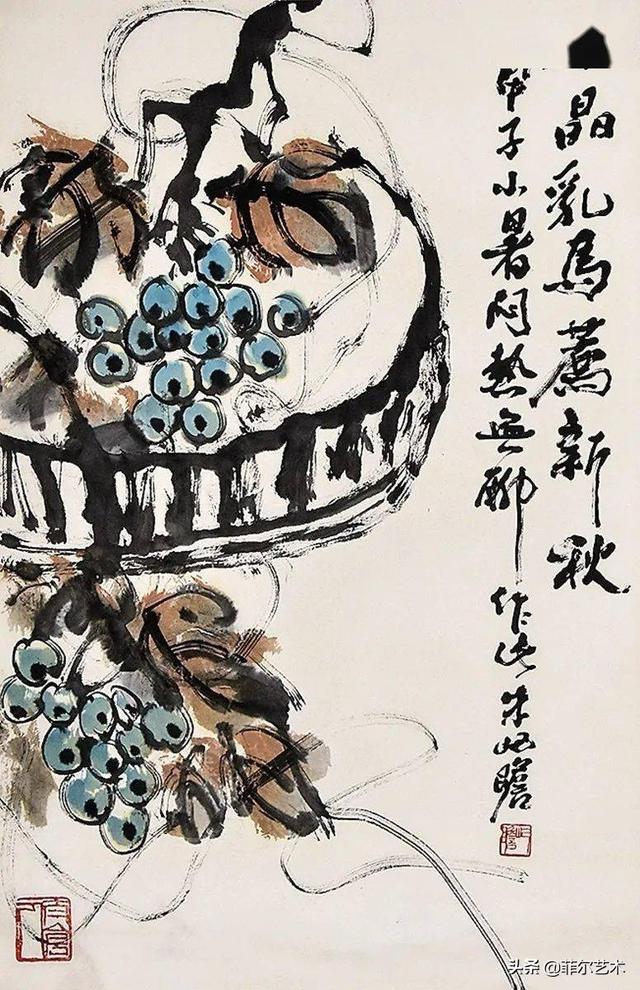 晶乳馬薦新秋
甲子小暑悶熱無聊作此朱屺瞻
头条 @菲尔艺术